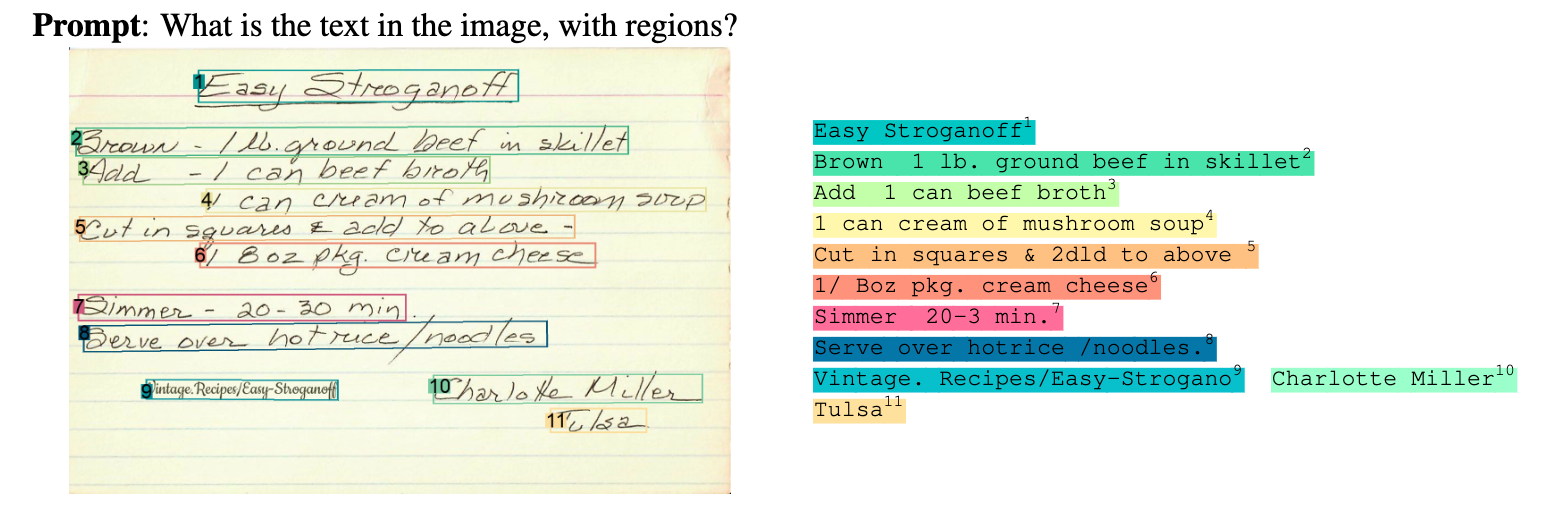 Prompt: What is the text in the image, with regions?
1 Easy Stroganoff
2 Brown - 1 lb. ground beef in skillet
3 Add - 1 can beef broth
4 1 can cream of mushroom soup
5 Cut in squares & add to above -
6 1 8 oz pkg. cream cheese
7 Simmer - 20 - 30 min.
8 Serve over hot rice / noodles
9 Vintage.Recipes/Easy-Stroganoff
10 Charlotte Miller
11 Tulsa
Easy Stroganoff1
Brown 1 lb. ground beef in skillet2
Add 1 can beef broth3
1 can cream of mushroom soup4
Cut in squares & 2dld to above 5
1/ Boz pkg. cream cheese6
Simmer 20-3 min.7
Serve over hotrice /noodles.8
Vintage. Recipes/Easy-Strogano9 Charlotte Miller10
Tulsa11